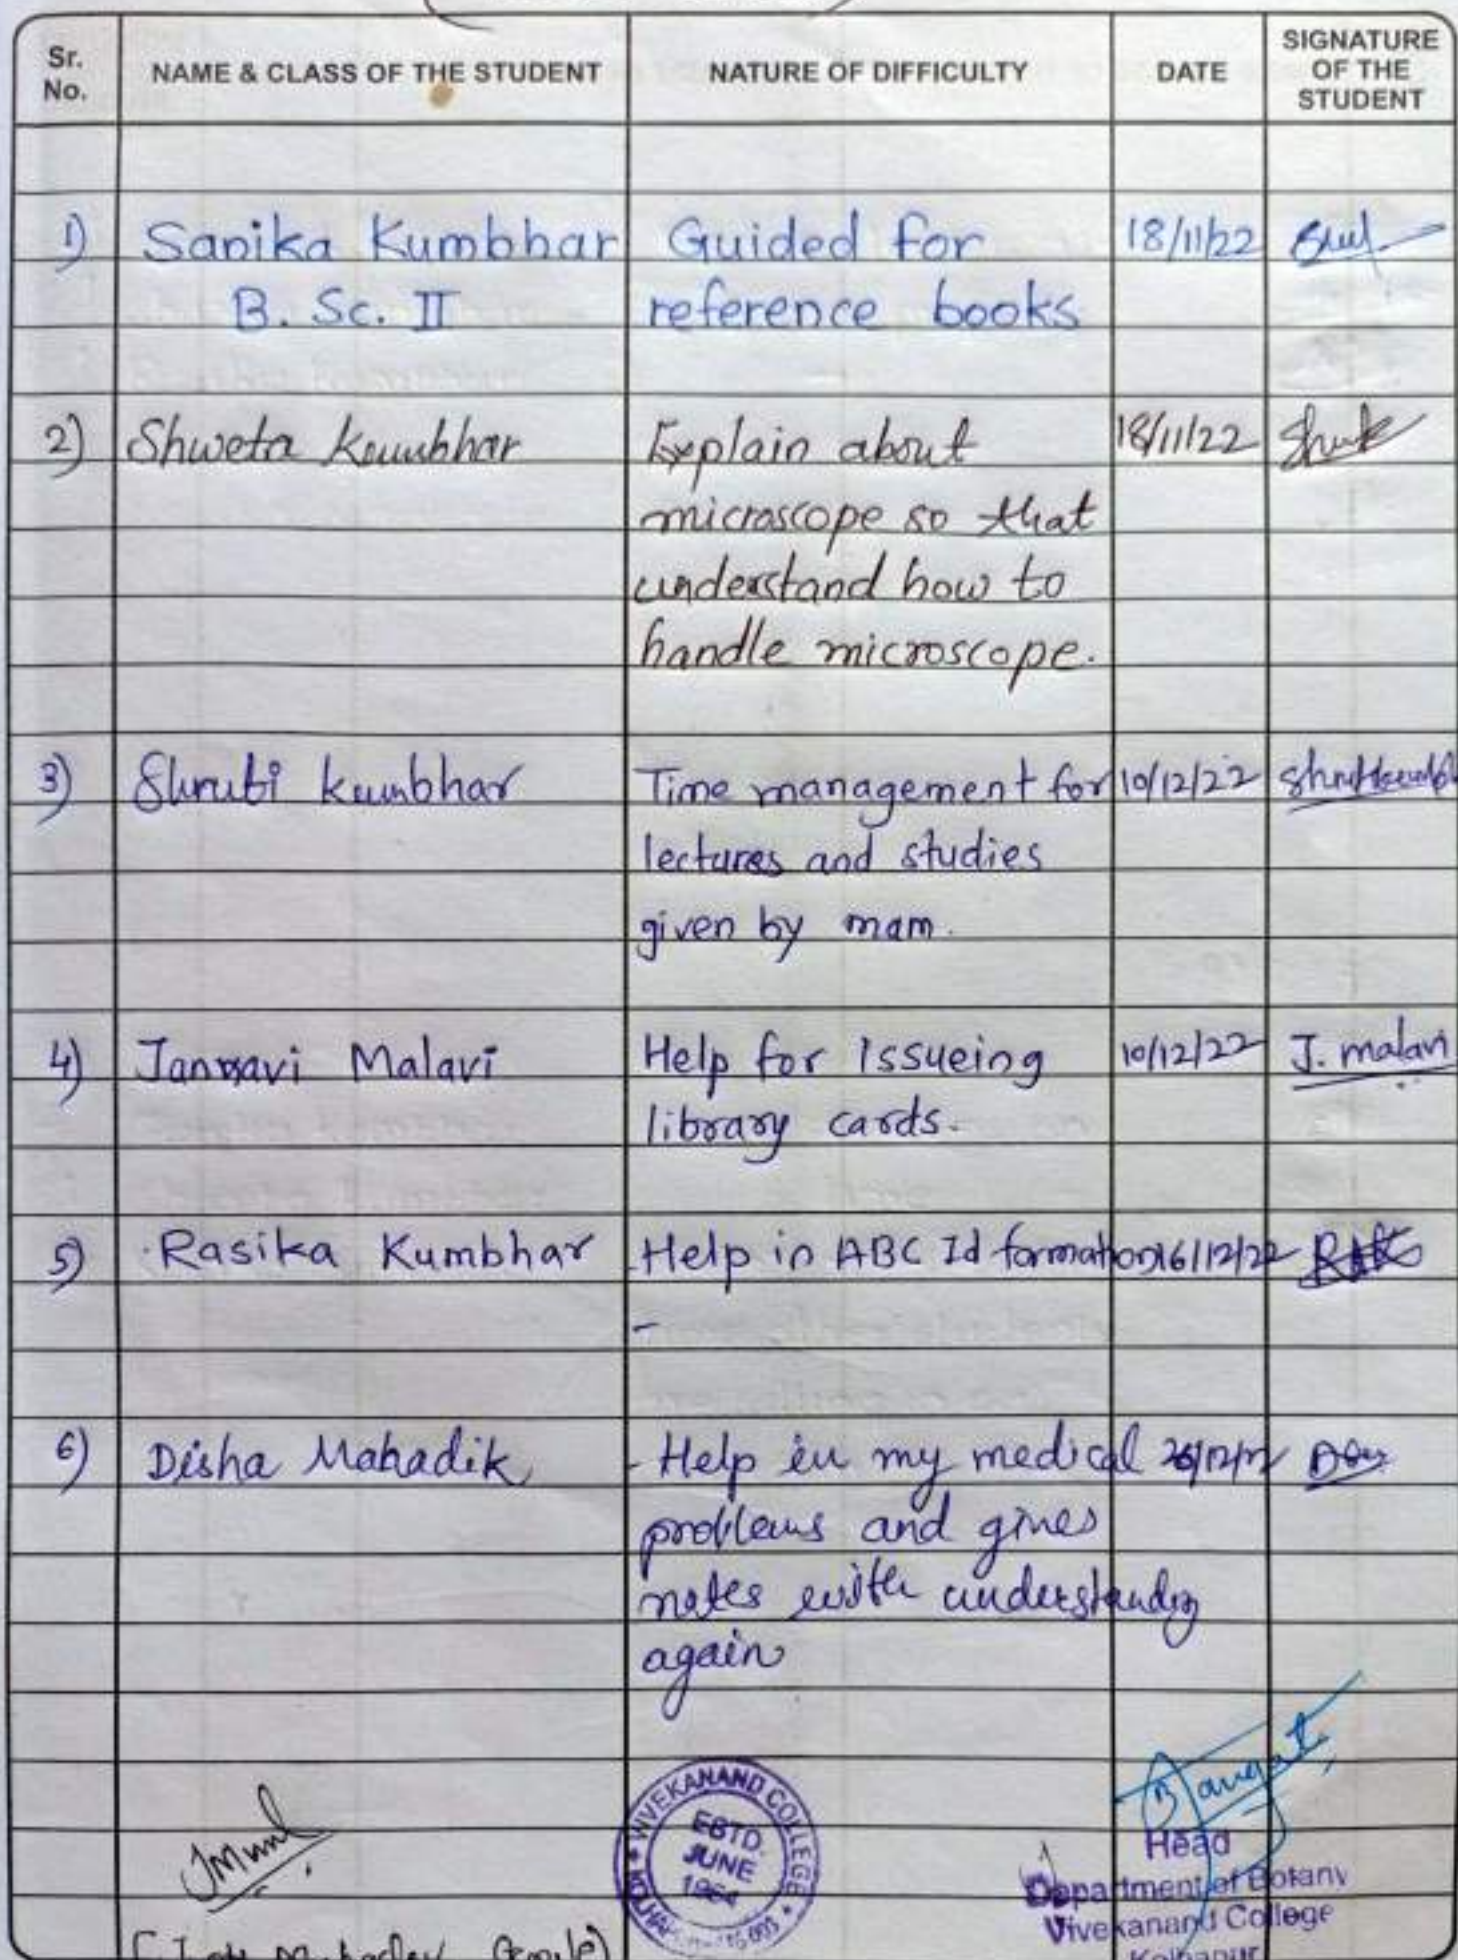 Sr. No. NAME & CLASS OF THE STUDENT NATURE OF DIFFICULTY DATE SIGNATURE OF THE STUDENT
1) Sanika Kumbhar Guided for 18/11/22
B. Sc. II reference books
2) Shweta Kumbhar Explain about 18/11/22
microscope so that
understand how to
handle microscope.
3) Shruti Kumbhar Time management for 10/12/22
lectures and studies
given by mam.
4) Janvavi Malavi Help for Issueing 10/12/22 J. malavi
library cards.
5) Rasika Kumbhar Help in ABC Id formation 16/12/22
-
6) Disha Mahadik - Help in my medical
problems and gives
notes with understanding
again
VIVEKANAND COLLEGE
ESTD.
JUNE
1964
Head
Department of Botany
Vivekanand College
Kolhapur